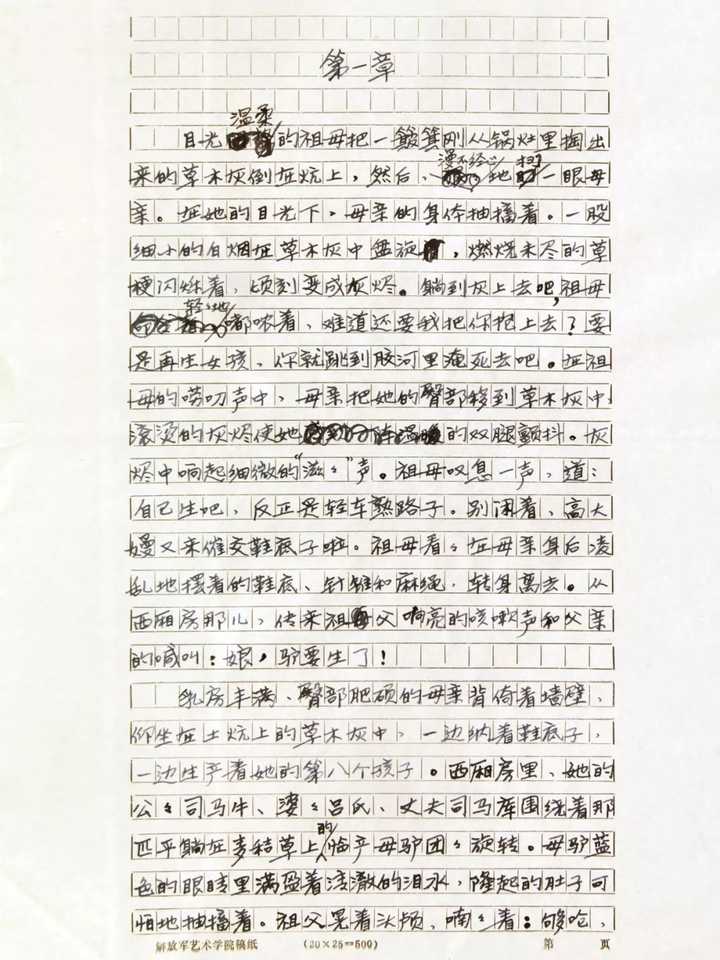 第一章
温柔
目光的祖母把一簸箕刚从锅灶里掏出
漫不经心 扫
来的草木灰倒在炕上，然后、地一眼母
亲。在她的目光下，母亲的身体抽搐着。一股
细小的白烟在草木灰中盘旋，燃烧未尽的草
梗闪烁着，顷刻变成灰烬。躺到灰上去吧，祖母
轻轻地
都哝着、难道还要我把你抱上去？要
是再生女孩、你就跳到胶河里淹死去吧。在祖
母的唠叨声中、母亲把她的臀部移到草木灰中
滚烫的灰烬使她的双腿颤抖。灰
烬中响起细微的“滋々”声。祖母叹息一声，道：
自己生吧、反正是轻车熟路子。别闲着、高大
嫚又来催交鞋底子啦。祖母看々在母亲身后凌
乱地摆着的鞋底、针锥和麻绳．转身离去。从
西厢房那儿、传来祖父响亮的咳嗽声和父亲
的喊叫：娘，驴要生了！
乳房丰满、臀部肥硕的母亲背倚着墙壁、
仰坐在土炕上的草木灰中、一边纳着鞋底子、
一边生产着她的第八个孩子。西厢房里、她的
公々司马牛、婆々吕氏、丈夫司马库围绕着那
的
匹平躺在麦秸草上临产母驴团々旋转。母驴蓝
色的眼睛里满盈着清澈的泪水，隆起的肚子可
怕地抽搐着。祖父晃着头颅、喃々着：够呛、
解放军艺术学院稿纸 （20×25=500） 第 页